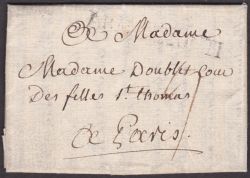 A Madame
Madame Doublet Cour
des filles St thomas
A Paris.